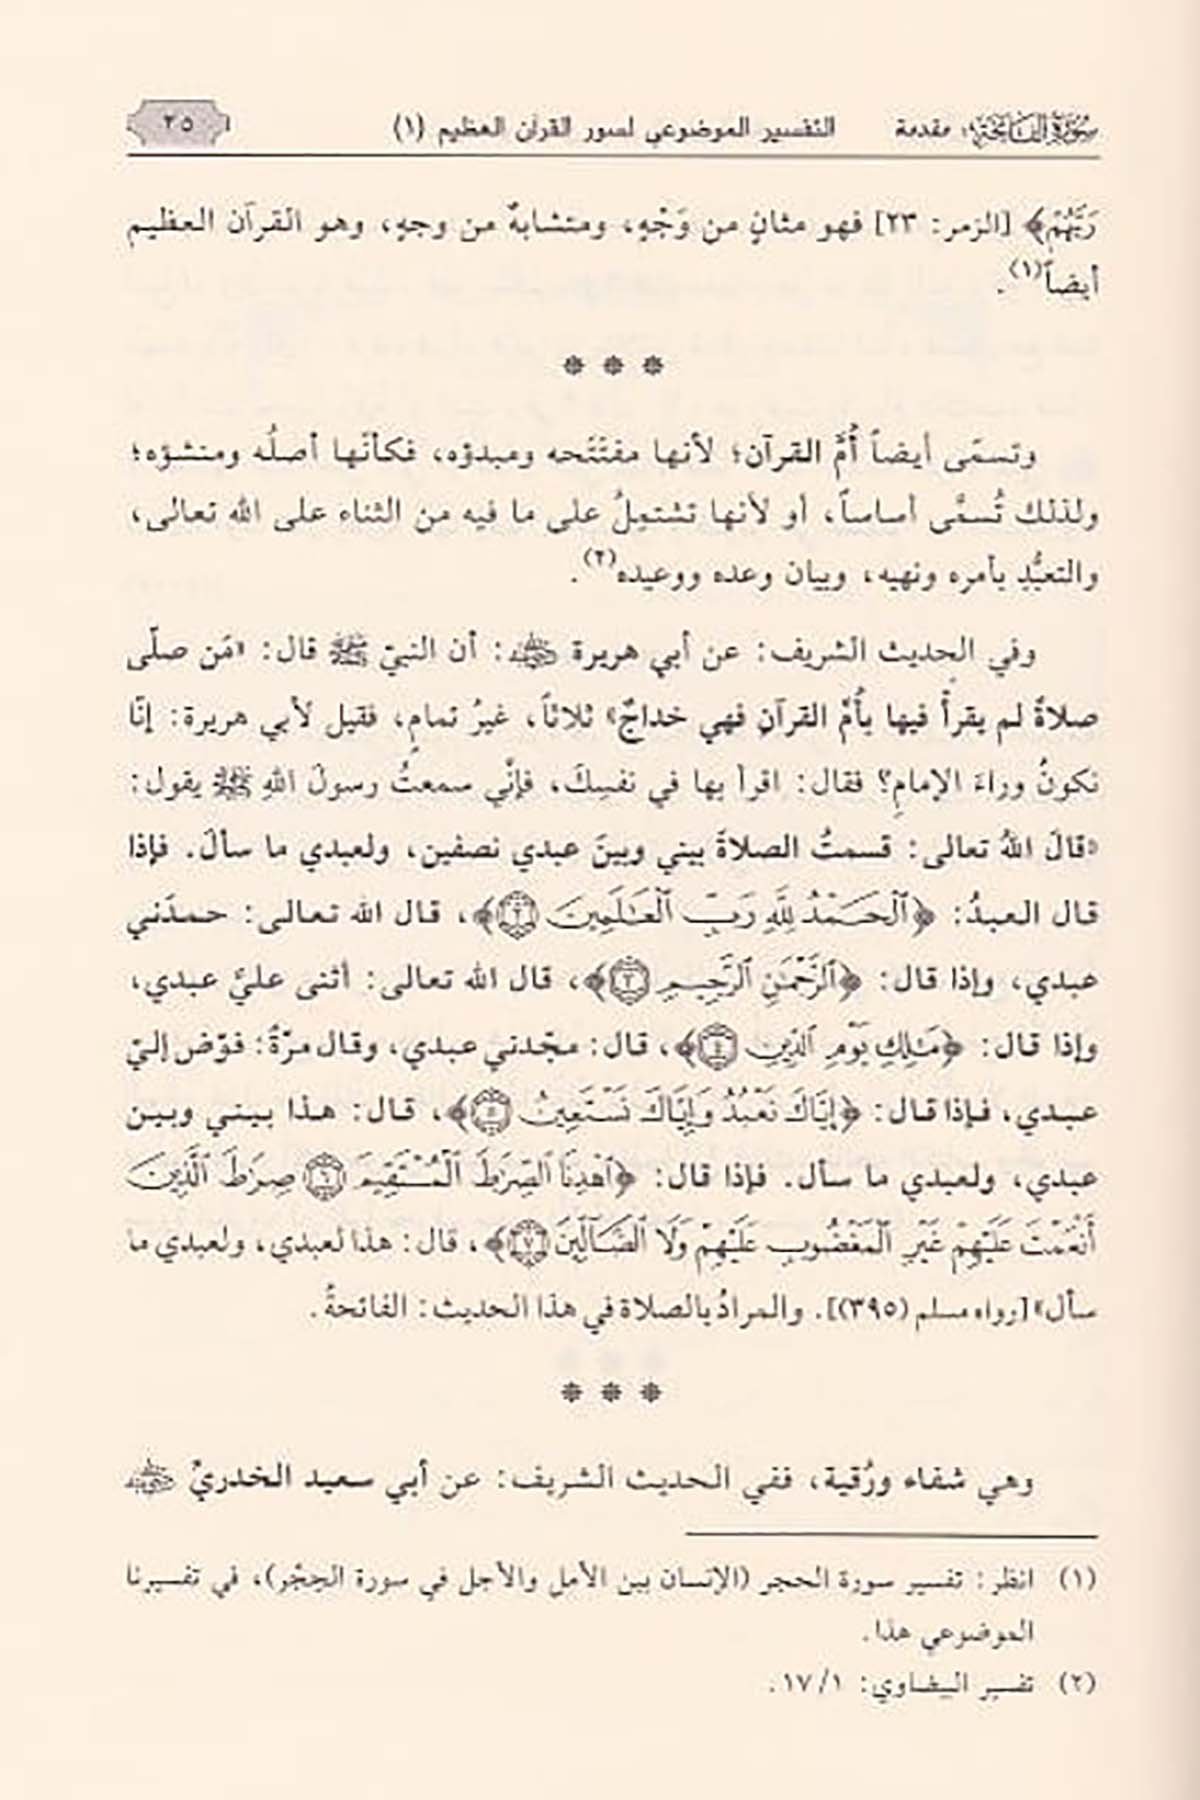 سُورَةُ الفَاتِحَةِ: مقدمة التفسير الموضوعي لسور القرآن العظيم (١) ٢٥
رَبَّهُمْ﴾ [الزمر: ٢٣] فهو مثانٍ من وَجْهٍ، ومتشابهٌ من وجهٍ، وهو القرآن العظيم
أيضاً(١).
* * *
وتسمّى أيضاً أُمَّ القرآن؛ لأنها مفتَتَحه ومبدؤه، فكأنّها أصلُه ومنشؤه؛
ولذلك تُسمَّى أساساً، أو لأنها تشتمِلُ على ما فيه من الثناء على الله تعالى،
والتعبُّدِ بأمره ونهيه، وبيان وعده ووعيده(٢).
وفي الحديث الشريف: عن أبي هريرة رضي الله عنه: أن النبيّ ﷺ قال: «مَن صلّى
صلاةً لم يقرأْ فيها بأُمِّ القرآنِ فهي خداجٌ» ثلاثاً، غيرُ تمامٍ، فقيل لأبي هريرة: إنّا
نكونُ وراءَ الإمامِ؟ فقال: اقرأ بها في نفسِكَ، فإنّي سمعتُ رسولَ اللهِ ﷺ يقول:
«قالَ اللهُ تعالى: قسمتُ الصلاةَ بيني وبينَ عبدي نصفين، ولعبدي ما سألَ. فإذا
قال العبدُ: ﴿ٱلْحَمْدُ لِلَّهِ رَبِّ ٱلْعَٰلَمِينَ ٢﴾، قال الله تعالى: حمدَني
عبدي، وإذا قال: ﴿ٱلرَّحْمَٰنِ ٱلرَّحِيمِ ٣﴾، قال الله تعالى: أثنى عليَّ عبدي،
وإذا قال: ﴿مَٰلِكِ يَوْمِ ٱلدِّينِ ٤﴾، قال: مجّدني عبدي، وقال مرّةً: فوّض إليّ
عبدي، فإذا قال: ﴿إِيَّاكَ نَعْبُدُ وَإِيَّاكَ نَسْتَعِينُ ٥﴾، قال: هذا بيني وبين
عبدي، ولعبدي ما سأل. فإذا قال: ﴿ٱهْدِنَا ٱلصِّرَٰطَ ٱلْمُسْتَقِيمَ ٦ صِرَٰطَ ٱلَّذِينَ
أَنْعَمْتَ عَلَيْهِمْ غَيْرِ ٱلْمَغْضُوبِ عَلَيْهِمْ وَلَا ٱلضَّآلِّينَ ٧﴾، قال: هذا لعبدي، ولعبدي ما
سأل» [رواه مسلم (٣٩٥)]. والمرادُ بالصلاة في هذا الحديث: الفاتحةُ.
* * *
وهي شفاء ورُقية، ففي الحديث الشريف: عن أبي سعيد الخدريّ رضي الله عنه
(١) انظر: تفسير سورة الحجر (الإنسان بين الأمل والأجل في سورة الحِجْر)، في تفسيرنا
الموضوعي هذا.
(٢) تفسير البيضاوي: ١/ ١٧.